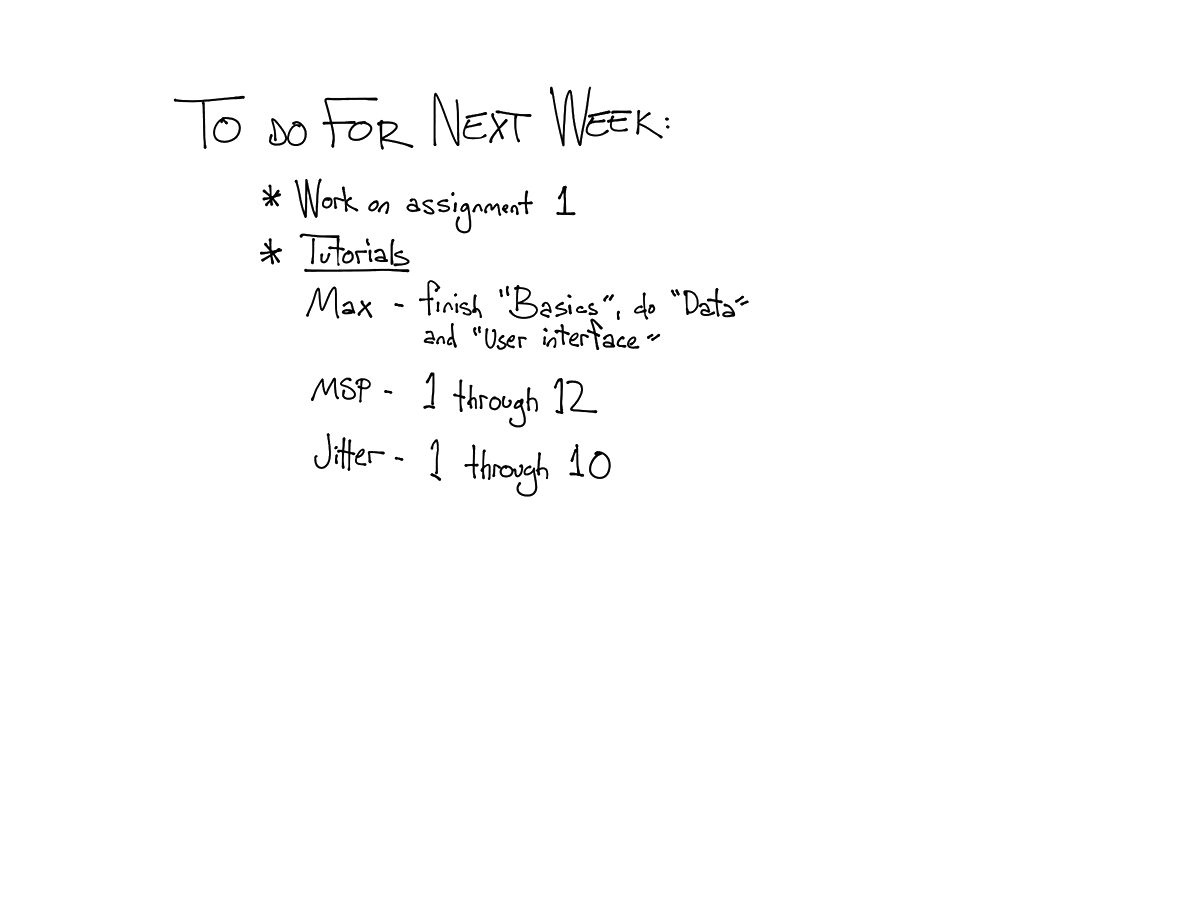 To do For Next Week:
* Work on assignment 1
* Tutorials
Max - finish "Basics", do "Data"
and "User interface"
MSP - 1 through 12
Jitter - 1 through 10